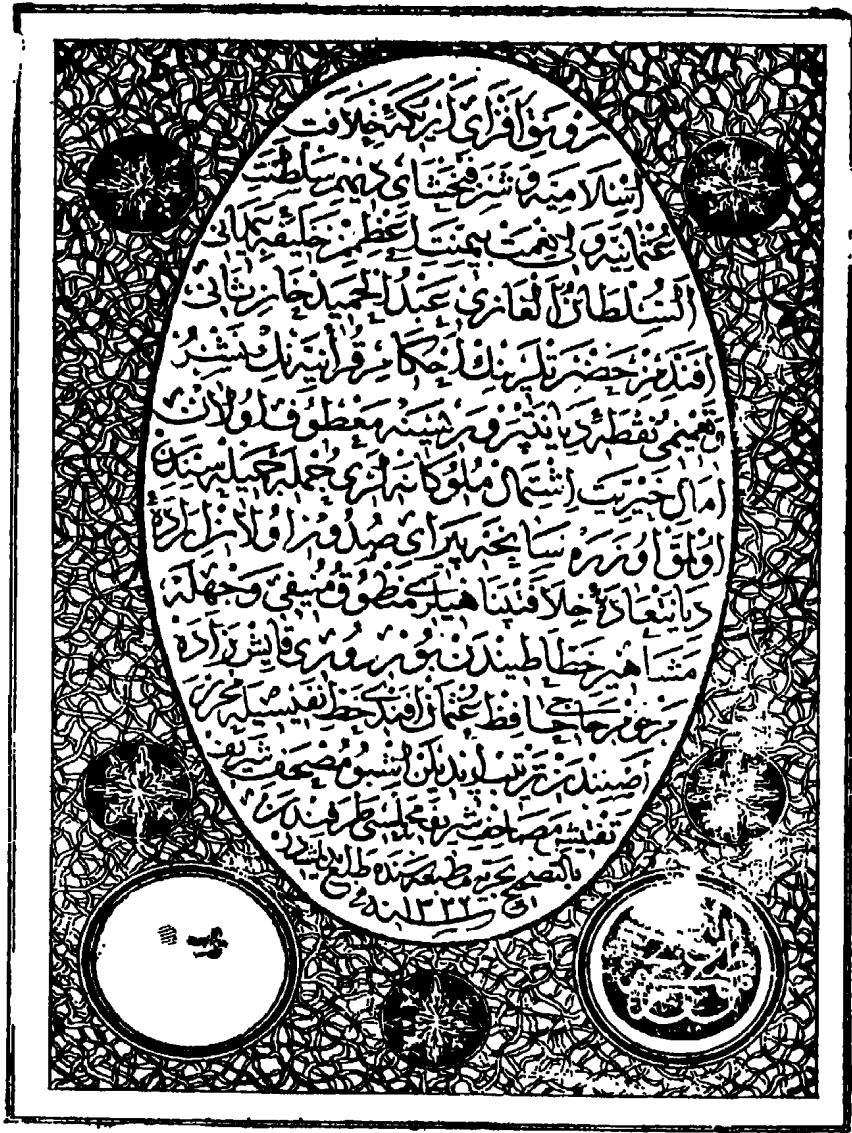 رونق افزای اریکهٔ خلافت
اسلامیه و شرفبخشای دیهیم سلطنت
عثمانیه ولی نعمت بیمنت اعظم خلیفهٔ
السلطان الغازی عبد الحمید خان ثانی
افندمز حضرتلرینك احکام قرآنیه نك نشر
و تعمیمی نقطهٔ دیانتپرورسینه معطوف اولان
امال خیریت اشتمال ملوکانه لری جملهٔ جمیله سندن
اولمق اوزره سانحه پیرای صدور اولان ارادهٔ
دیانتعادهٔ خلافتپناهیلری منطوق منیفی وجهله
مشاهیر خطاطیندن بوردوری قایش زاده
مرحوم حاجی حافظ عثمان افندی خط نفیسیله محرر
اصلندن ترتیب ایدیلن اشبو مصحف شریف
تفتیش مصاحف شریفه مجلسی طرفندن
بالتصحیح بحریه مطبعه سنده طبع
سنه ١٣٢٢